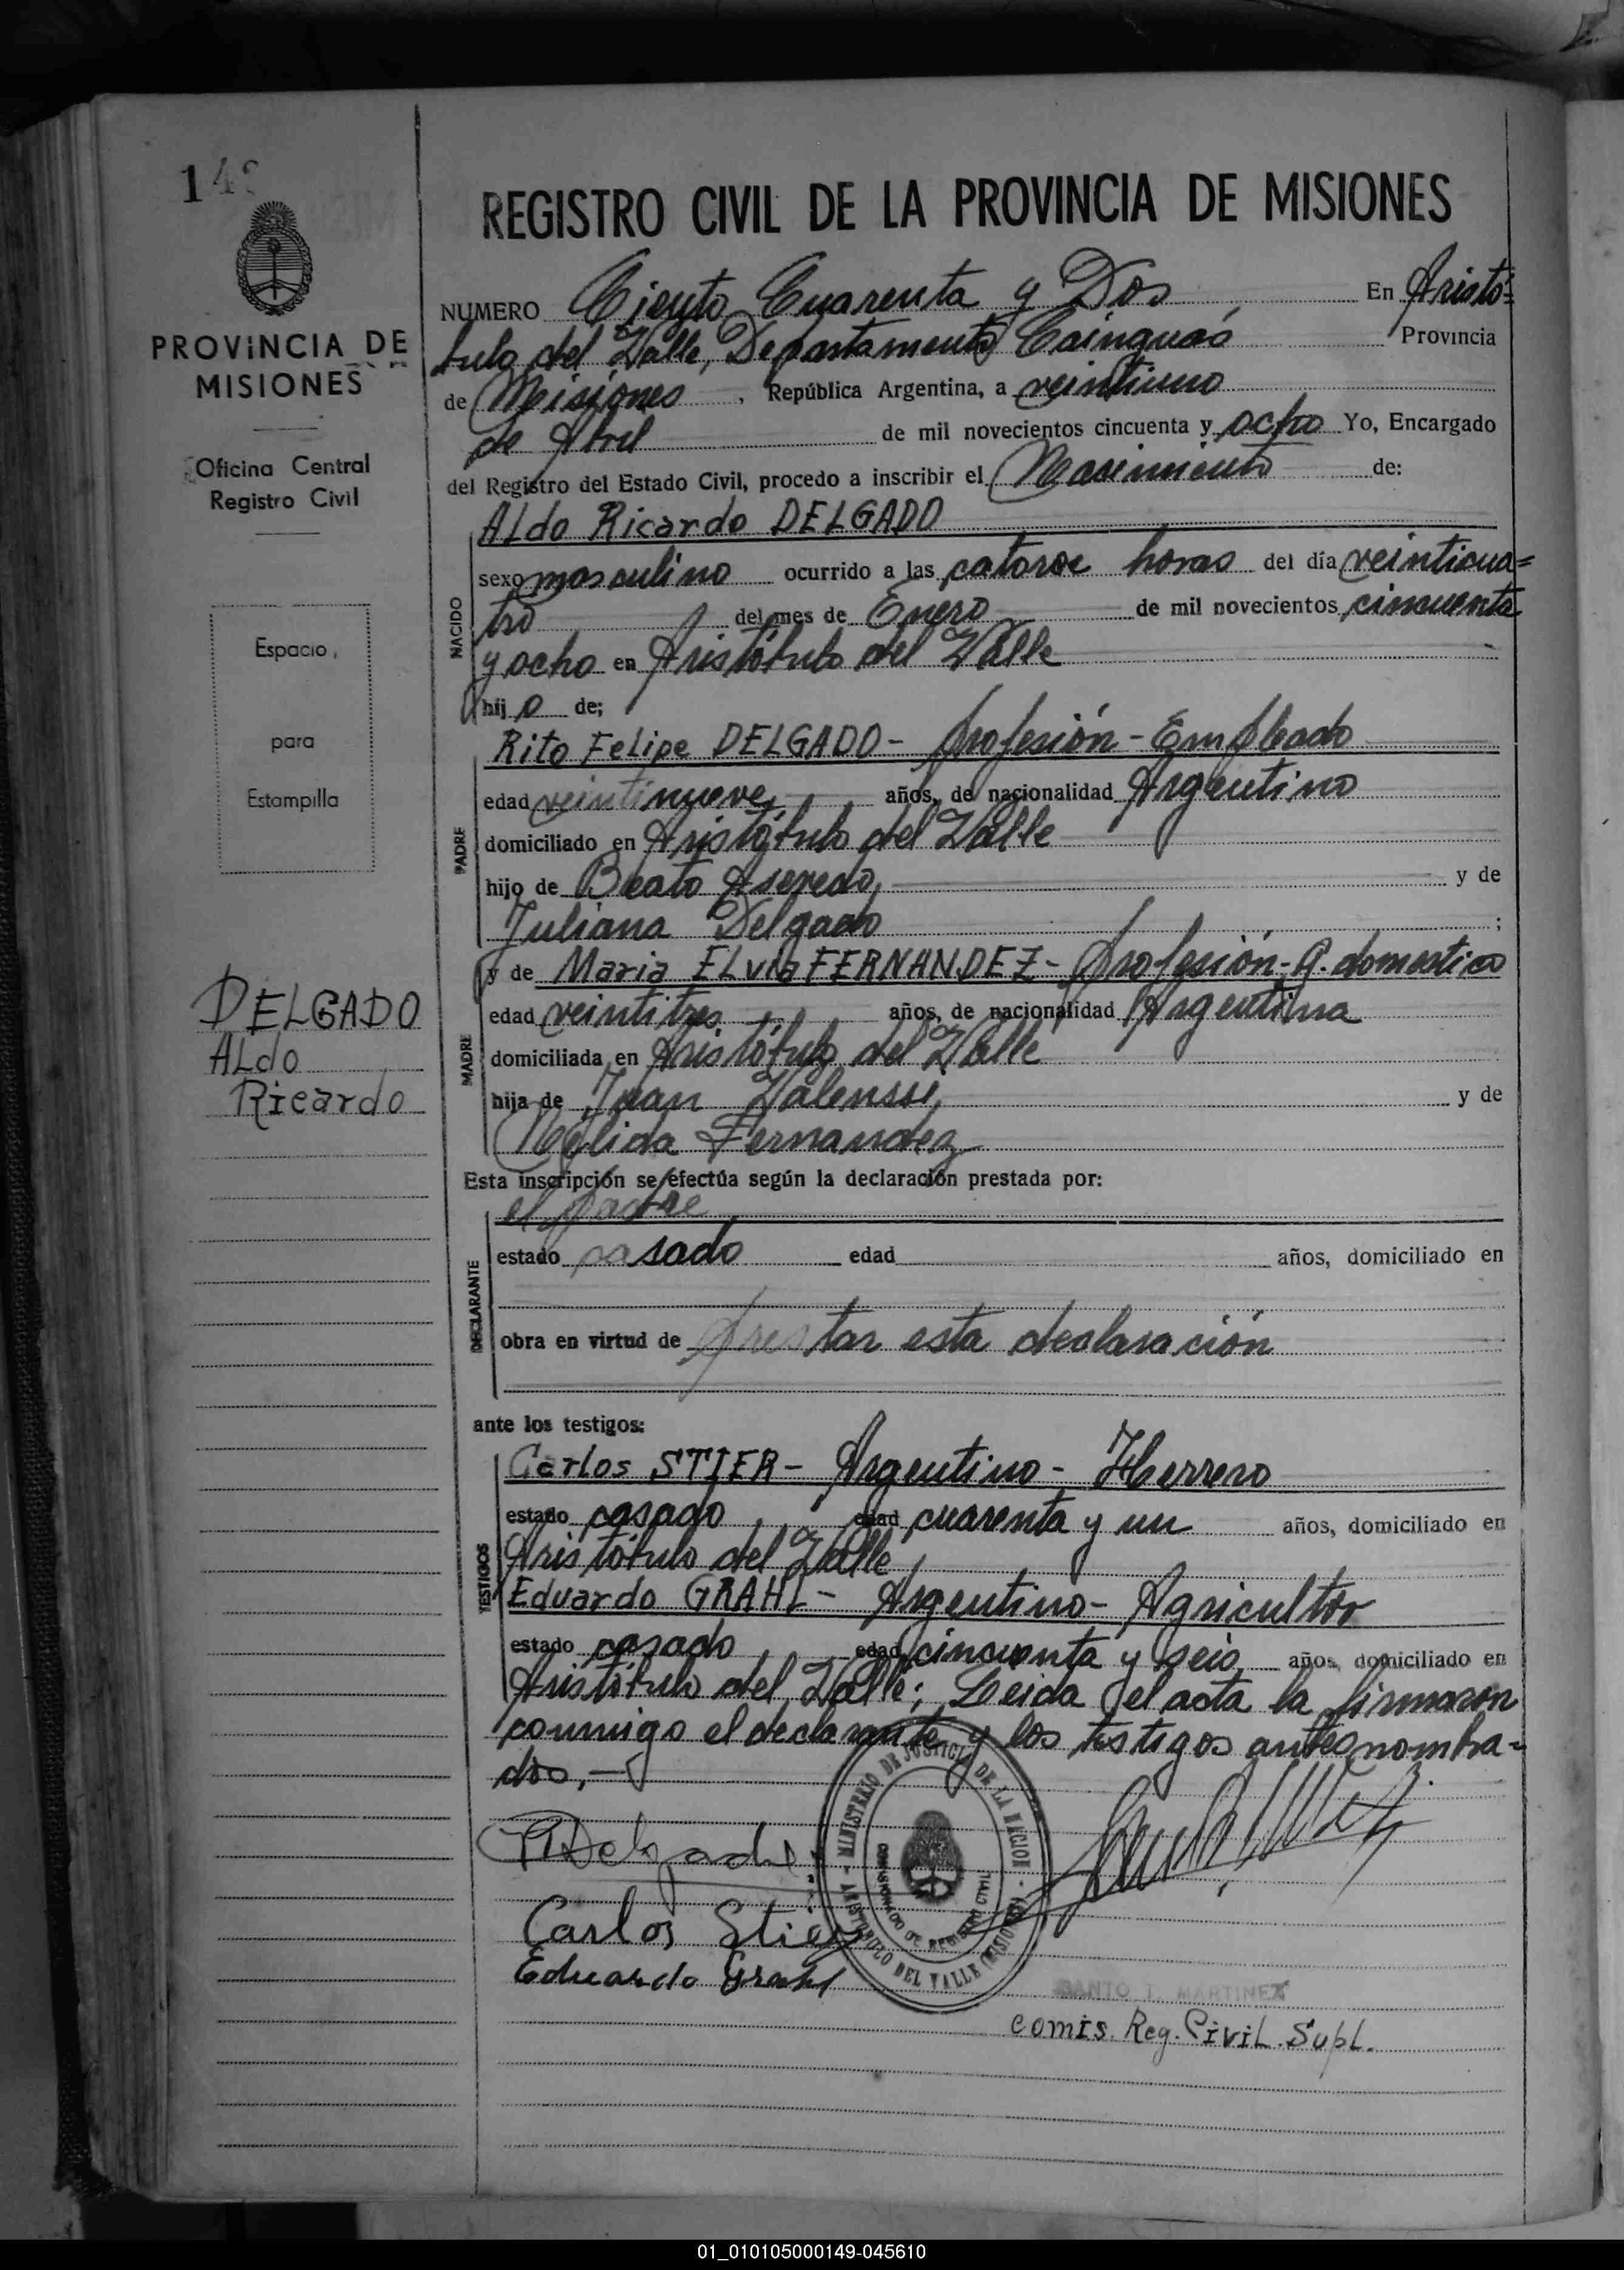 14
REGISTRO CIVIL DE LA PROVINCIA DE MISIONES
PROVINCIA DE
MISIONES
Oficina Central
Registro Civil
Espacio
para
Estampilla
DELGADO
Aldo
Ricardo
NUMERO Ciento Cuarenta y Dos, En Aristó=
bulo del Valle, Departamento Cainguás Provincia
de Misiones, República Argentina, a veintiuno
de Abril de mil novecientos cincuenta y ocho Yo, Encargado
del Registro del Estado Civil, procedo a inscribir el Nacimiento de:
NACIDO
Aldo Ricardo DELGADO
sexo masculino ocurrido a las catorce horas del día veinticua=
tro del mes de Enero de mil novecientos cincuenta
y ocho en Aristóbulo del Valle
hijo de;
PADRE
Rito Felipe DELGADO- profesión-Empleado
edad veintinueve, años, de nacionalidad Argentino
domiciliado en Aristóbulo del Valle
hijo de Beato Aseredo, y de
Juliana Delgado ;
MADRE
y de Maria ELvia FERNANDEZ- profesión-q. domestico
edad veintitres años, de nacionalidad Argentina
domiciliada en Aristóbulo del Valle
hija de Juan Valenssi, y de
Fernandez
Esta inscripción se efectúa según la declaración prestada por:
DECLARANTE
el padre
estado casado edad años, domiciliado en
obra en virtud de prestar esta declaración
ante los testigos:
TESTIGOS
Carlos STIER- Argentino- Herrero
estado casado, edad cuarenta y un años, domiciliado en
Aristóbulo del Valle,
Eduardo GRAHL- Argentino- Agricultor
estado casado, edad cincuenta y seis años, domiciliado en
Aristóbulo del Valle; Leida el acta la firmaron
conmigo el declarante y los testigos antes nombra=
dos,-
Delgado
Carlos Stier
Eduardo Grahl
MINISTERIO DE JUSTICIA DE LA NACION
ARISTOBULO DEL VALLE (MISIONES)
SANTO T. MARTINEZ
comis. Reg. Civil. Supl.
01_010105000149-045610